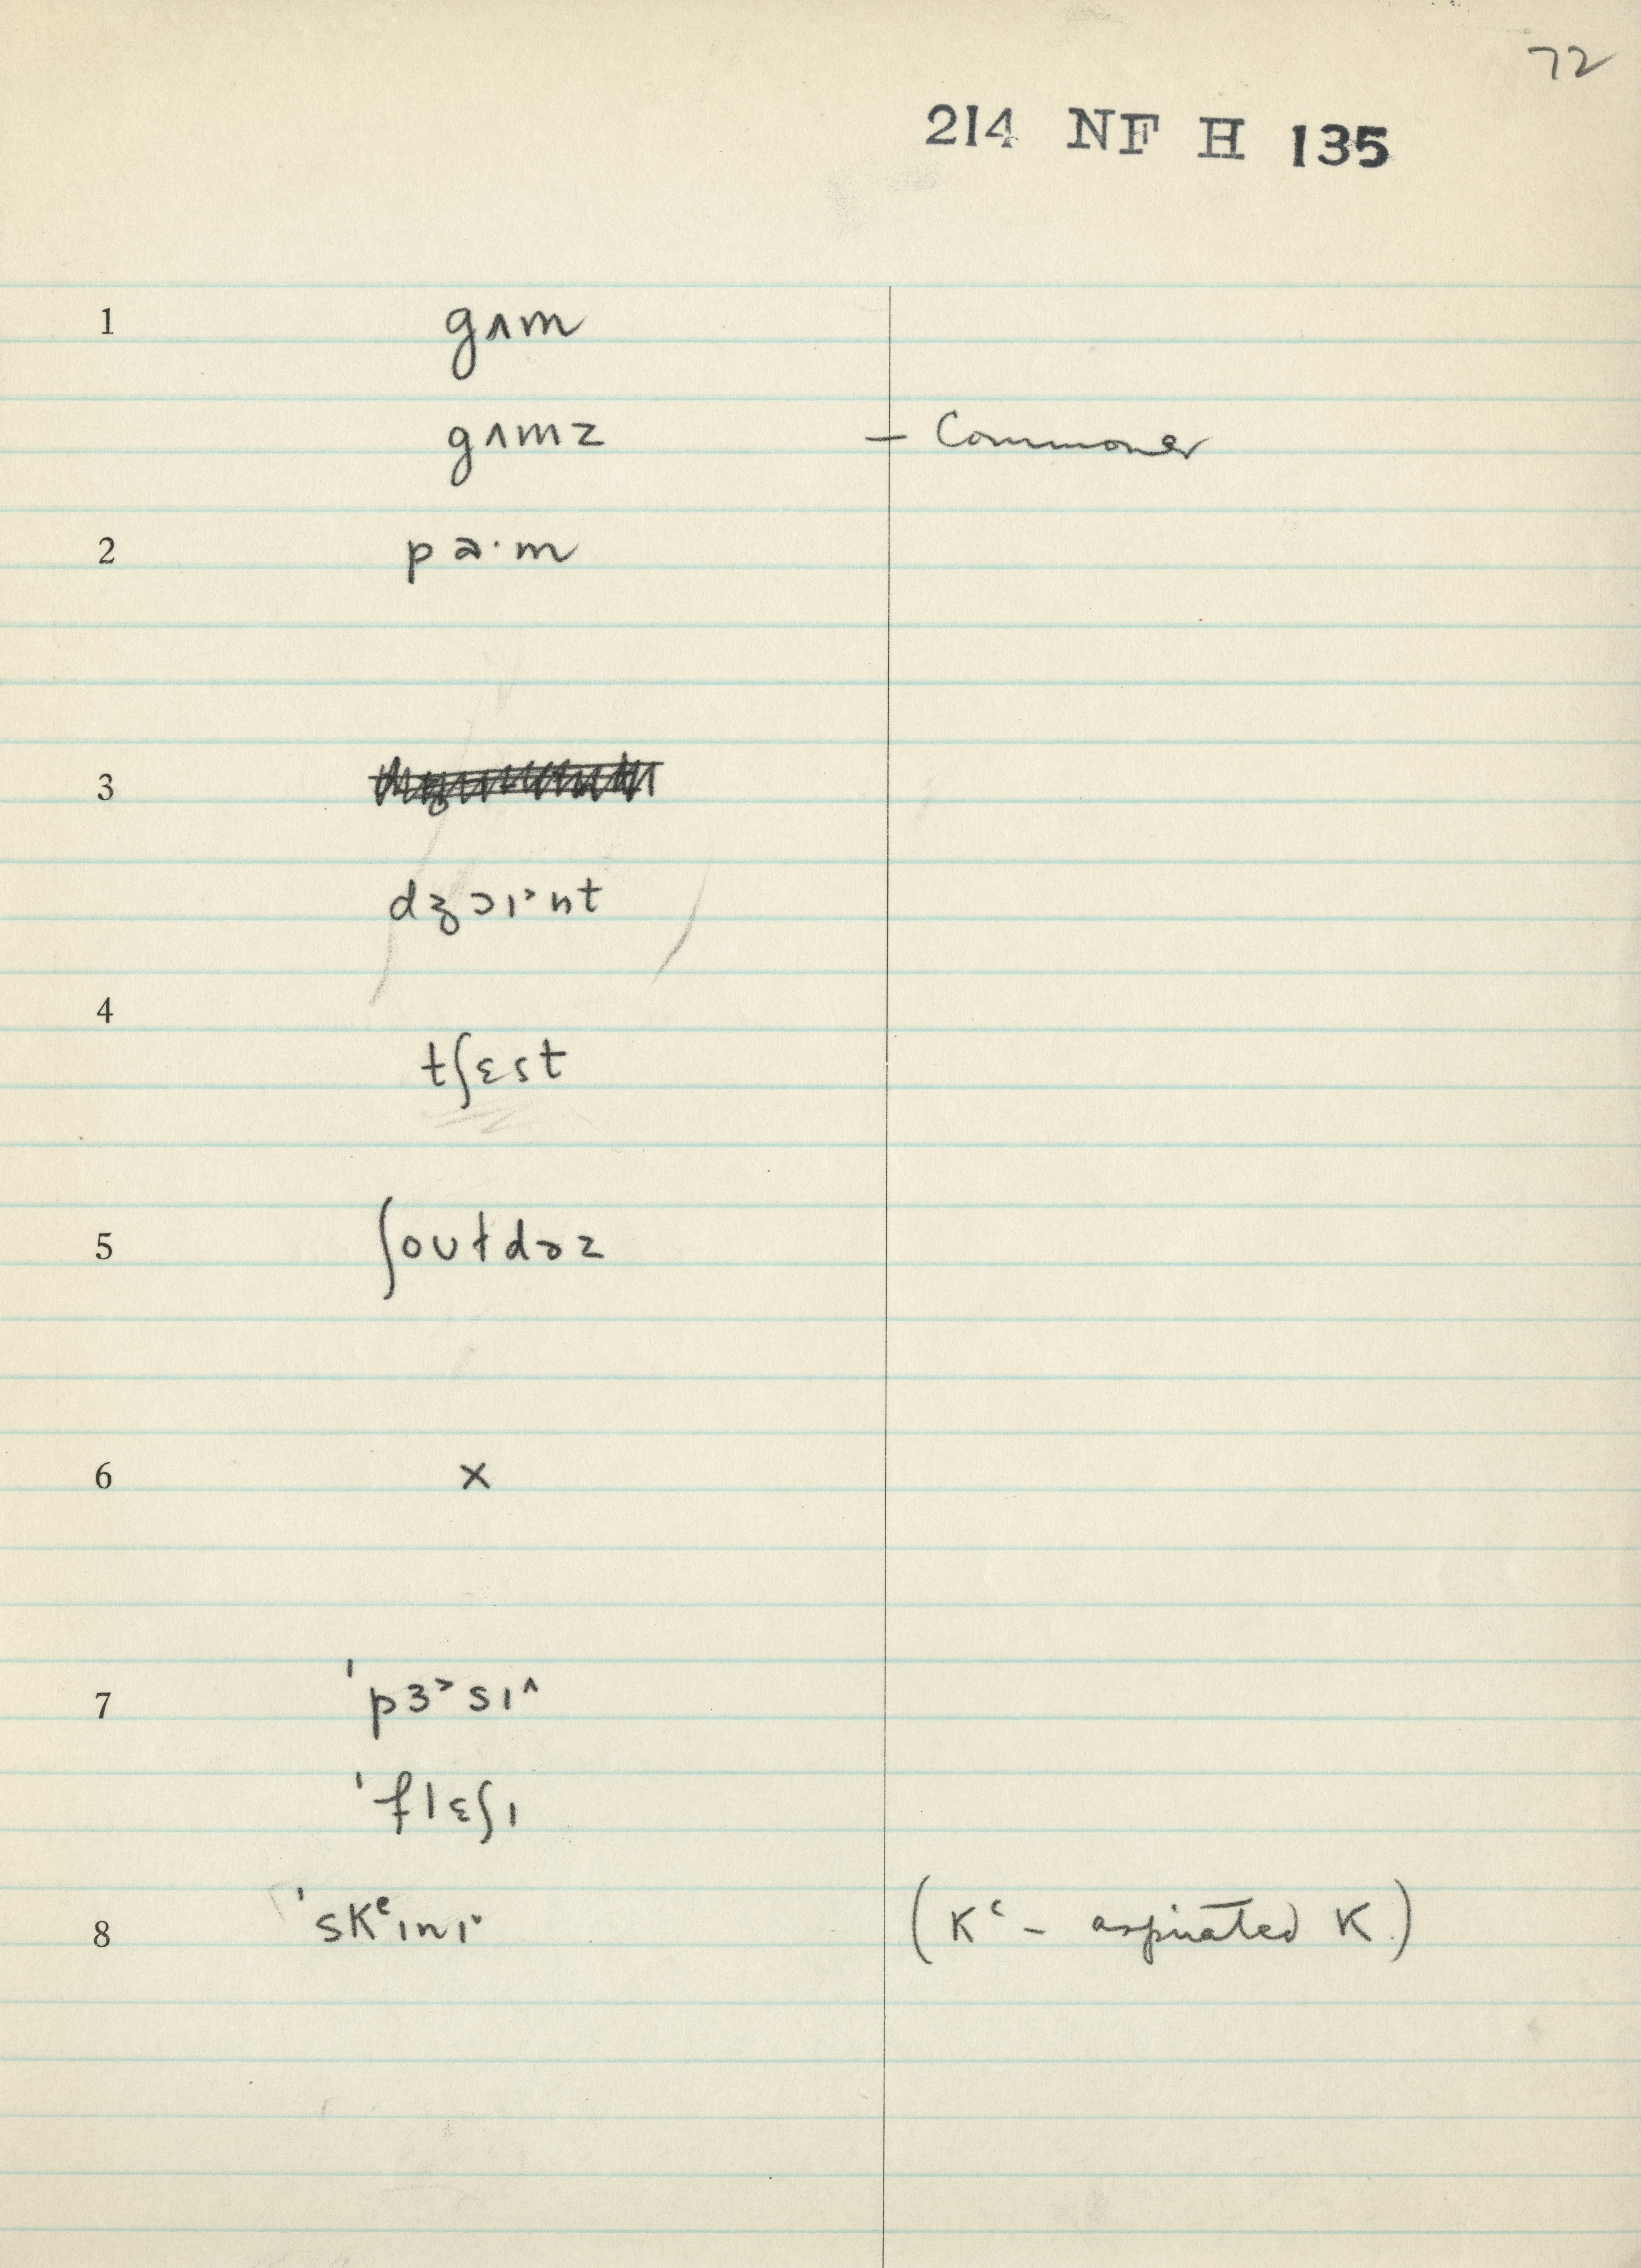 72
214 NF H 135
1 gʌm
gʌmz – Commoner
2 pa·m
3
dʒɔɪ˃nt
4
tʃɛst
5 ʃoʊɫdəz
6 x
7 ˈpɜ˃sɪ^
ˈflɛʃɪ
8 ˈsKᶜɪnɪ˅ (Kᶜ – aspirated K.)